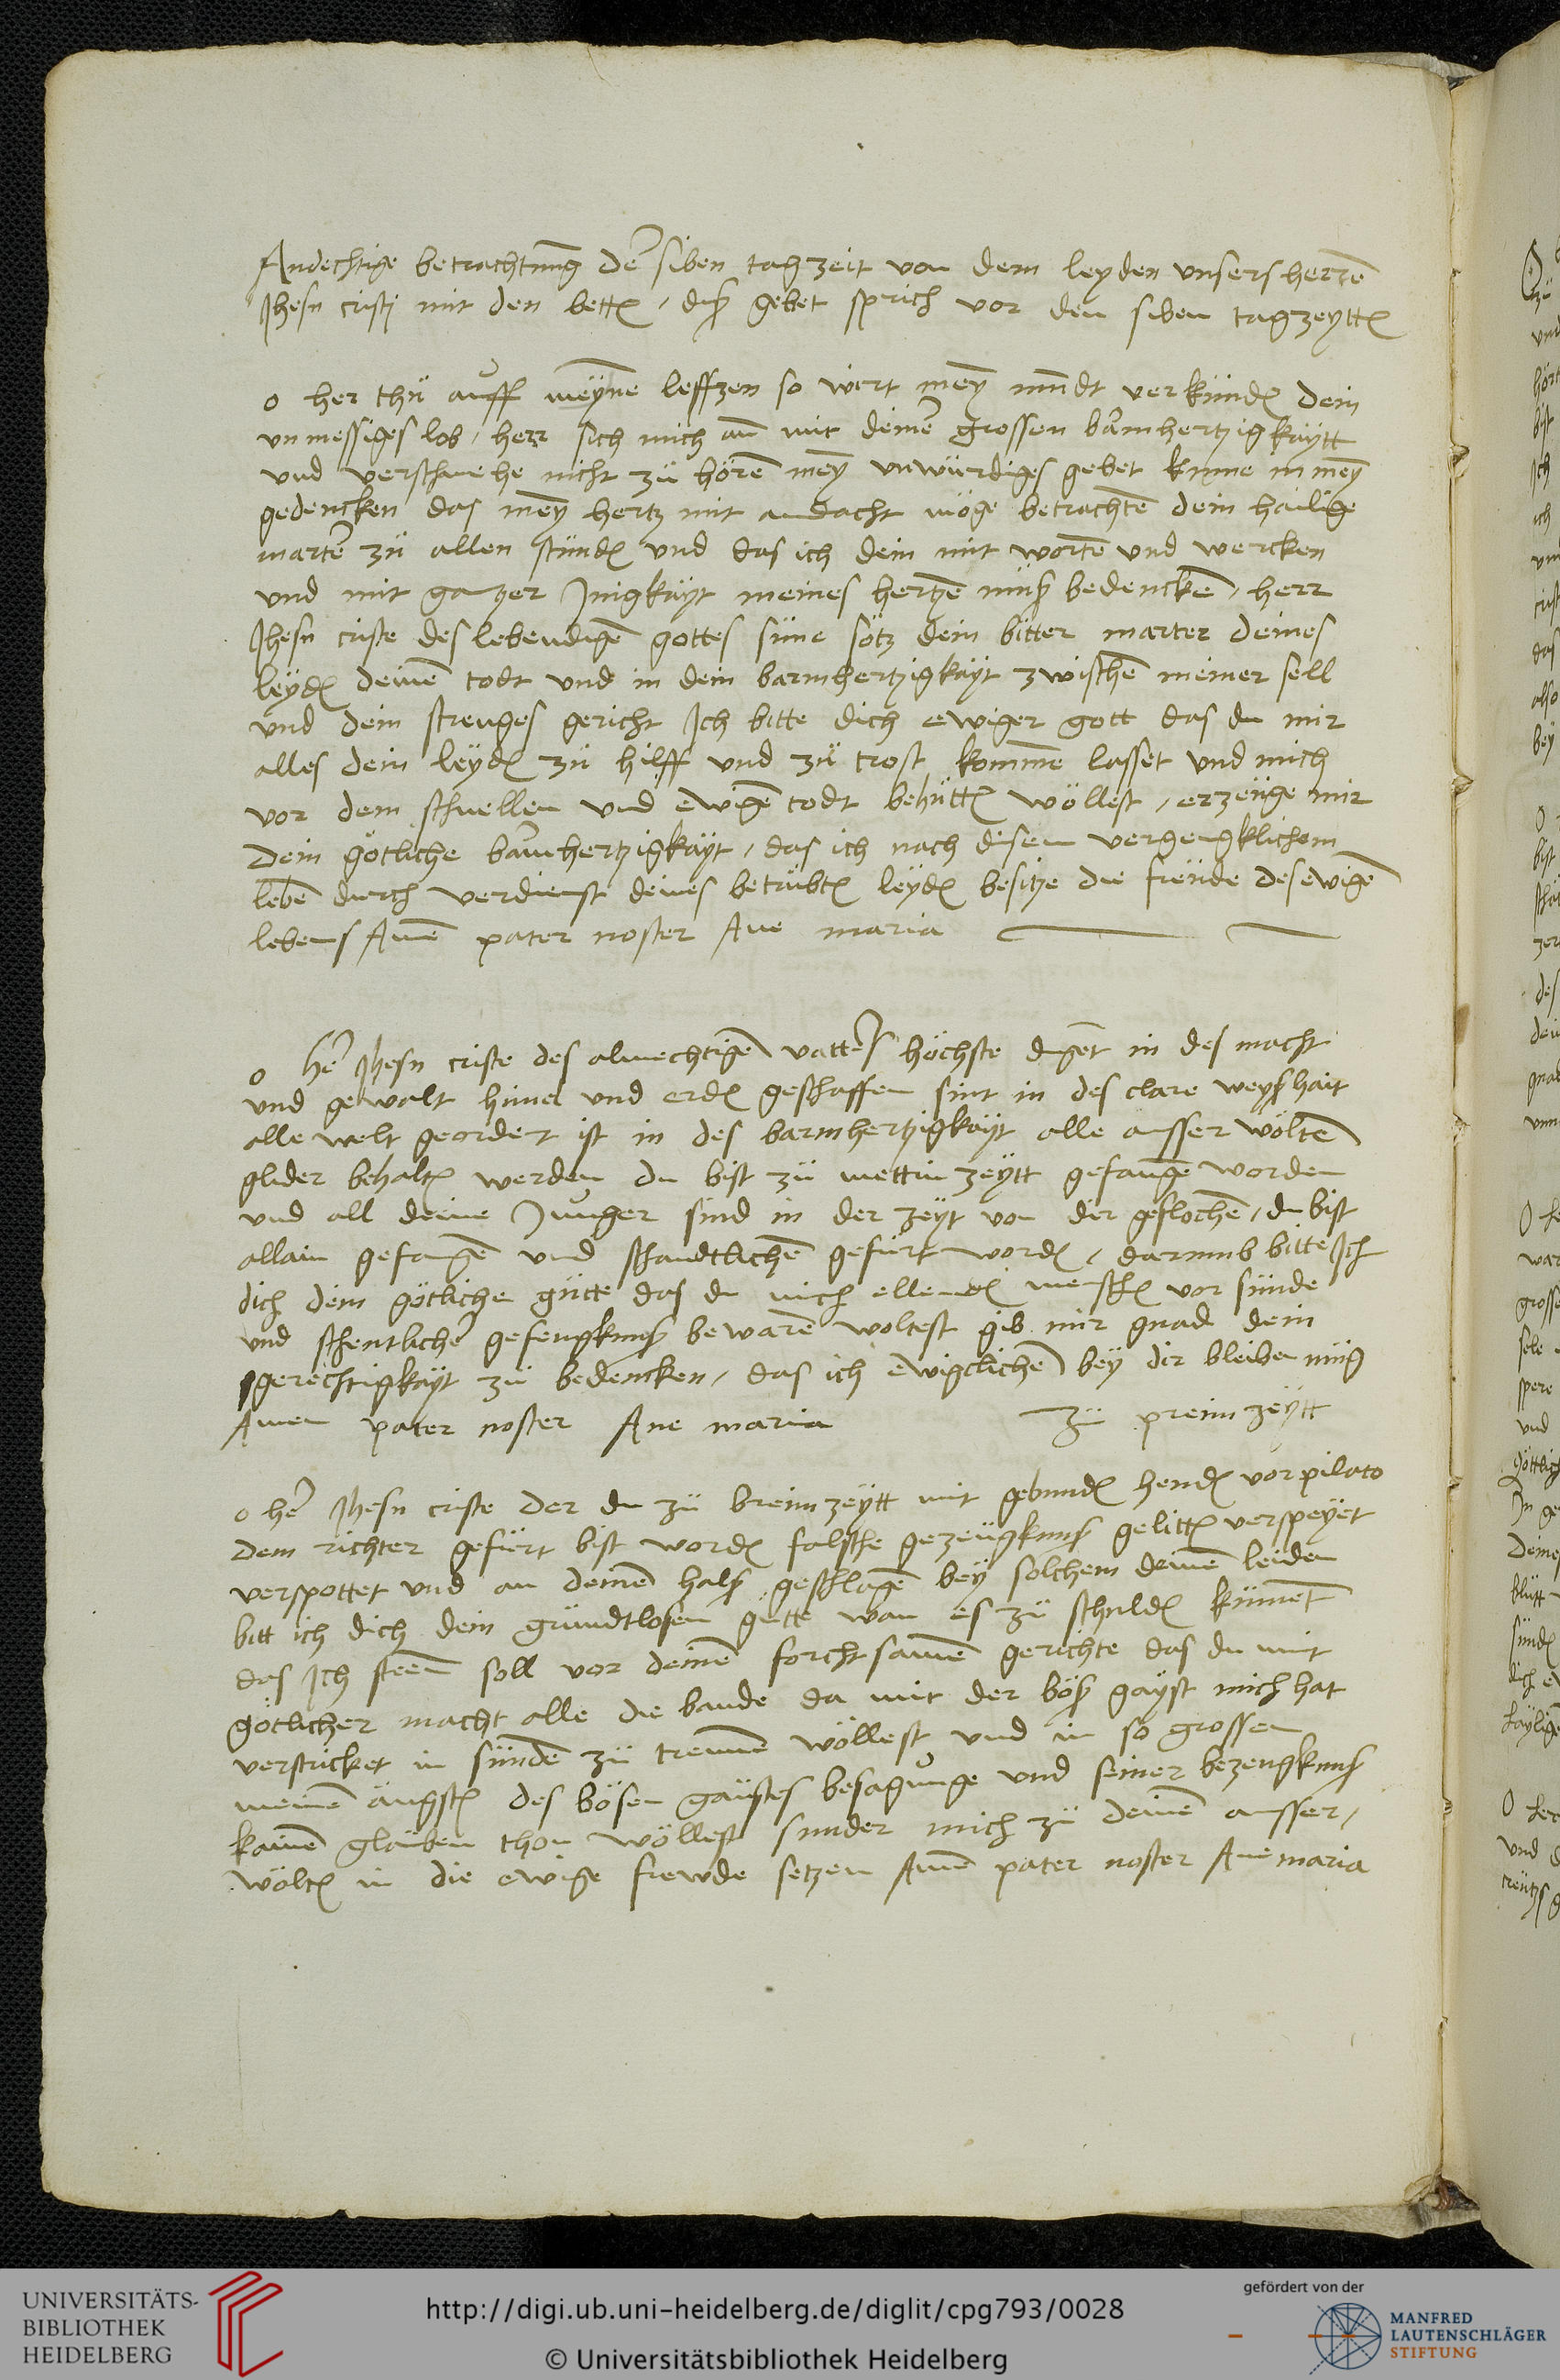 Andechtige betrachtung der siben tagzeit von dem leyden unsers herren
Jhesu cristi mit den betten / diß gebet sprich vor den siben tagzeytten
o her thü auff meyne leffzen so wirt mein mundt verkünden dein
unmessiges lob / herr sich mich an mit deiner grossen barmhertzigkäytt
und verschmehe nicht zü hören mein unwürdiges gebet kume in mein
gedencken das mein hertz mit andacht möge betrachten dein hailige
marter zü allen stünden und das ich dein mit worten und wercken
und mit gantzer Jnigkäyt meines hertzen müß bedencken / herr
Jhesu criste des lebendigen gottes süne sötz dein bitter marter deines
leyden deinen todt und in dein barmhertzigkäyt zwischen meiner sell
und dein strenges gericht Ich bitte dich ewiger gott das du mir
alles dein leyden zü hilff und zü trost kommen lasset und mich
vor dem schnellen und ewigen todt behütten wöllest / erzeüge mir
dein götliche barmhertzigkäyt / das ich nach disem vergengklichem
leben durch verdienst deines betrübten leyden besitze die freüde des ewigen
lebens Amen pater noster Ave maria
o her Jhesu criste des almechtigen vatters höchste in des macht
und gewalt himel und erden geschaffen sint in des clare weyßhait
alle welt geordent ist in des barmhertzigkäyt alle ausser wölten
glider behalten werden du bist zü mettin zeytt gefangen worden
und all deine Junger sind in der zeyt von dir geflochen / du bist
allain gefangen und schandtlichen gefürt worden / darumb bitte Ich
dich dein götlichen gütte das du mich ellenden menschen vor sünde
und schentlicher gefengknuß bewaren woltest gib mir gnad dein
gerechtigkäyt zü bedencken / das ich ewigclichen bey dir bleiben müg
Amen pater noster Ave maria zü preim zeytt
o her Jhesu criste der du zü breim zeytt mit gebunden henden vor pilato
dem richter gefürt bist worden falsche gezeügknuß gelitten verspeyet
verspottet und an deinen halß geschlagen bey solchem deinen leiden
bitt ich dich dein gründtlosen gütte wan es zü schulden kümet
das Ich steen soll vor deinem forchtsamen gerichte das du mit
götlicher macht alle die bande da mit der böß gäyst mich hat
verstricket in sünden zü trennen wöllest und in so grossen
meinen ängsten des bösen gaistes besagunge und seiner bezeugknuß
kainen glauben thon wöllest sunder mich zü deinen ausser /
wölten in die ewige frewde setzen Amen pater noster Ave maria
UNIVERSITÄTS-
BIBLIOTHEK
HEIDELBERG
http://digi.ub.uni-heidelberg.de/diglit/cpg793/0028
© Universitätsbibliothek Heidelberg
gefördert von der
MANFRED
LAUTENSCHLÄGER
STIFTUNG